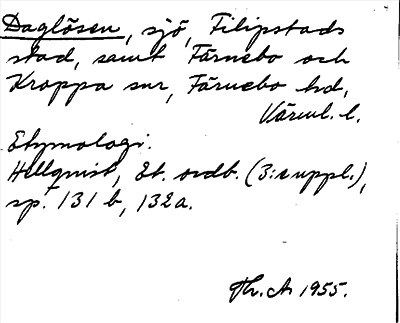 Daglösen, sjö, Filipstads
stad, samt Färnebo och
Kroppa snr, Färnebo hd,
Värml. l.
Etymologi.
Hellquist, Et. ordb. (3: suppl.),
sp. 131 b, 132a.
Th. A. 1955.